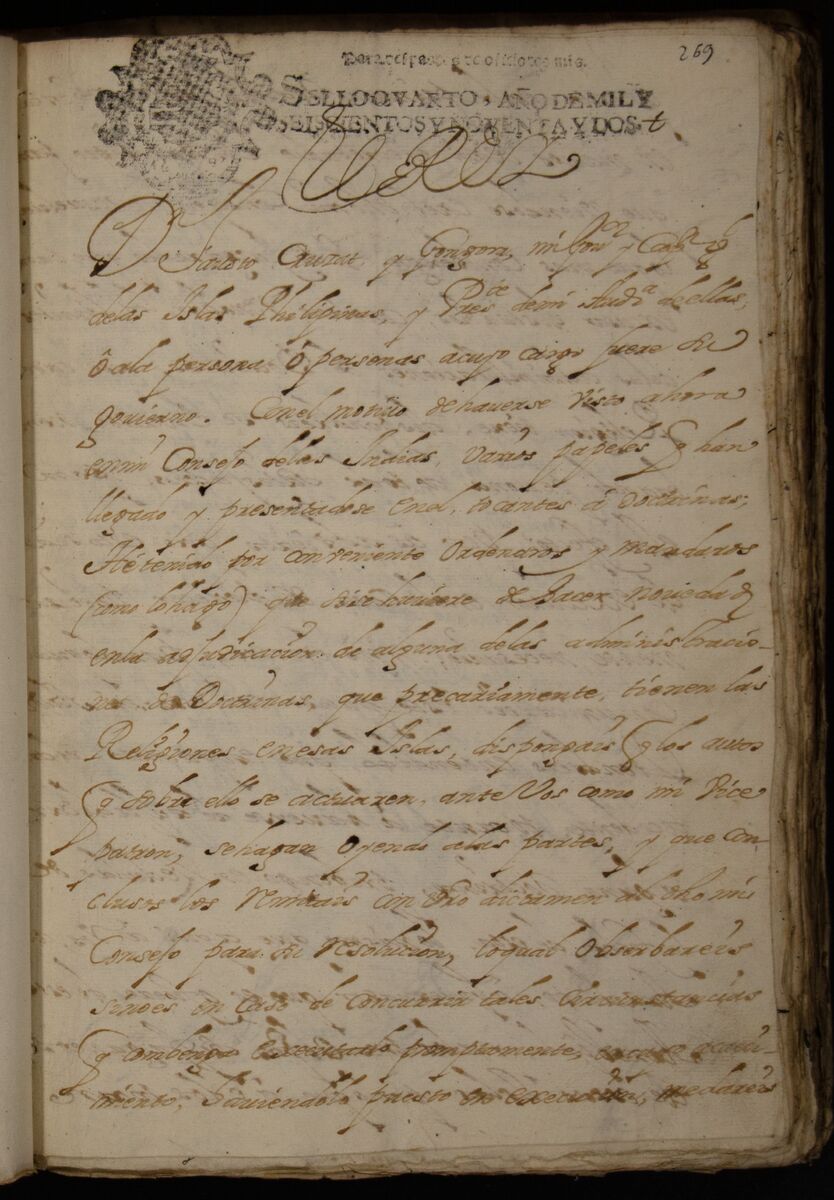 269
SELLO QVARTO, AÑO DE MIL Y
SEISCIENTOS Y NOVENTA Y DOS
El Rey
Cruzat y Gongora, mi Gov.or y Cap.n
delas Islas Philipinas, y Pres.te demi Aud.a deellas,
ô ala persona ô personas acuyo cargo fuere su
govierno. Conel motivo dehaverse visto ahora
enmi Consejo delas Indias, varios papeles q han
llegado y presentadose enel, tocantes â Doctrinas;
Hetenido por conveniente ordenaros y mandaros
(como lohago) que sise huviere de hacer novedad
enla adjudicacion de alguna delas administracio-
nes de Doctrinas, que precariamente, tienen las
Religiones enesas Islas, dispongais q los autos
q sobre ello se actuaren, ante Vos como mi Vice
patron, sehagan oyendo alas partes, y que con-
clusos los remitais con vro dictamen al dho mi
Consejo para su resolucion, loqual observareis
sinoes en caso de concurrir tales circunstancias
q combenga executarlo promptamente, encuyo acaeci-
miento, haviendolo puesto en execucion, medareis